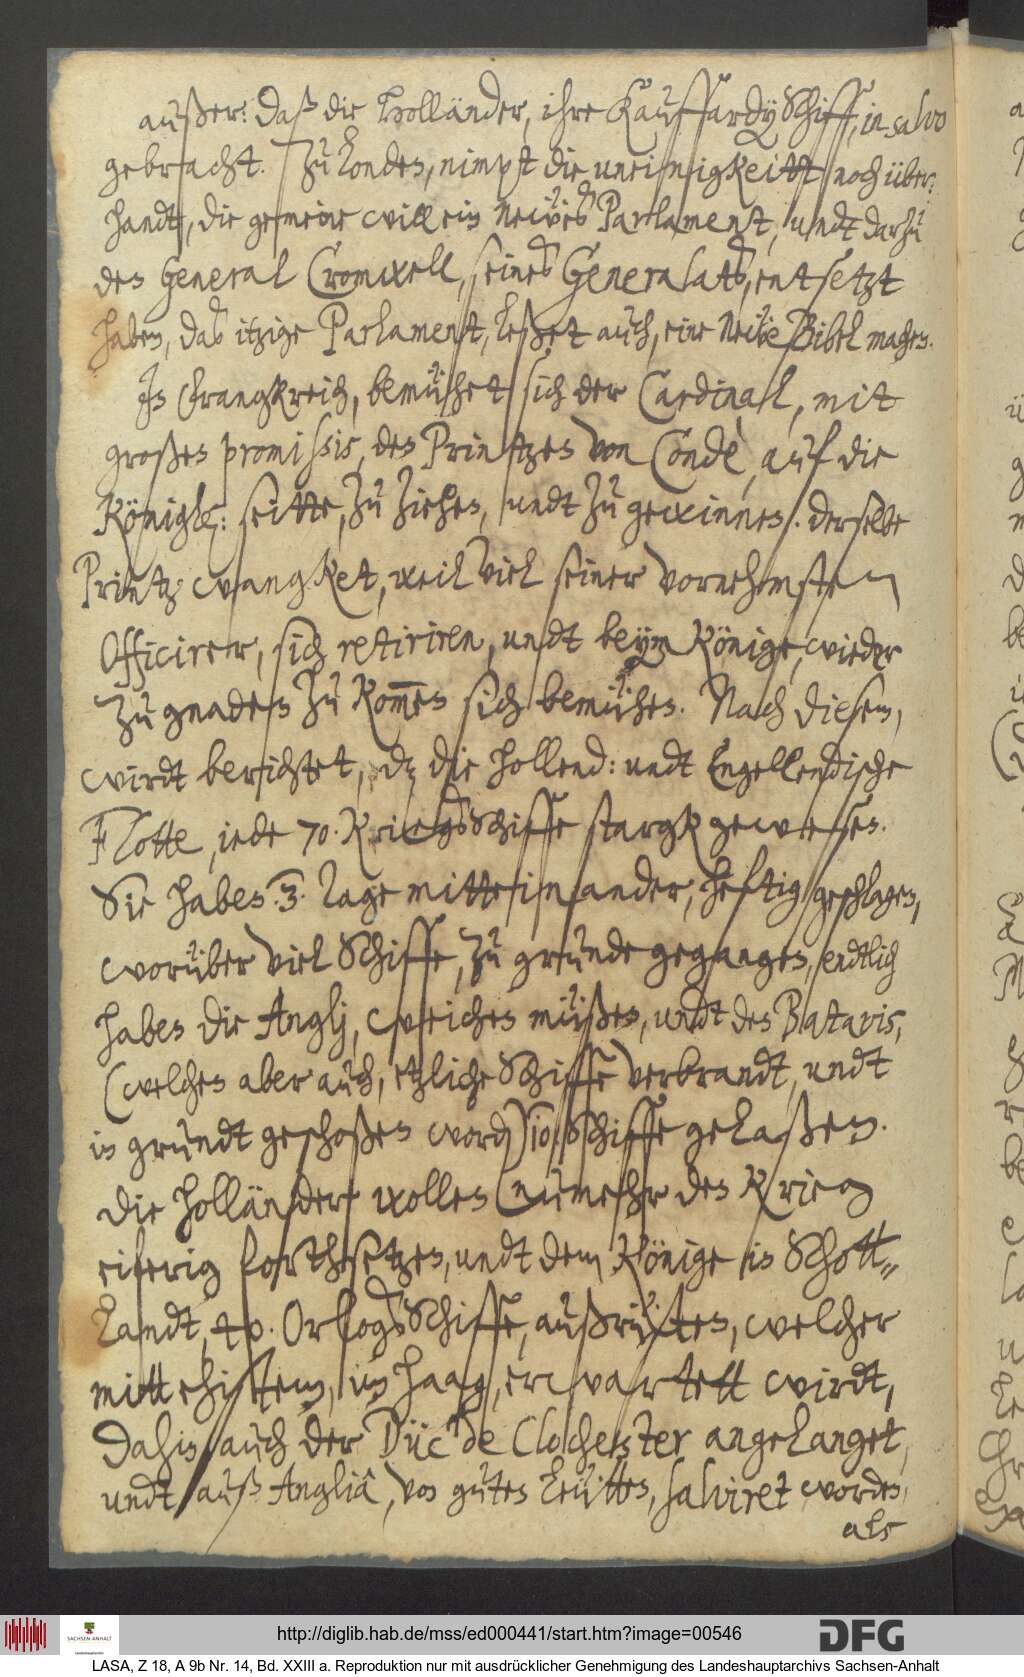 außer: daß die Holländer, ihre Kauffardÿ Schiff, in salvo
gebracht. Zu Londen, nimpt die uneinigkeitt noch über:
handt, die gemeine will ein neẅes Parlament, undt darzu
den General Cromwell, seines Generalats, entsetzt
haben, das itzige Parlament, leßet auch, eine neẅe Bibel machen.
In Franckreich, bemühet sich der Cardinal, mit
großen promissis, den Printzen von Condè, auf die
Königl: seitte, zu ziehen, undt zu gewinnen. derselbe
Printz wangket, weil viel seiner vornehmsten
Officirer, sich retiriren, undt beÿm Könige, wieder
zu gnaden zu kom̄en sich bemühen. Nach diesem,
wirdt berichtet, dz die Hollend: undt Engellendische
Flotte, iede 70. KriegsSchiffe starck gewesen.
Sie haben .3. Tage mitteinander, heftig geschlagen,
worüber viel Schiffe, zu grunde gegangen, endtlich
haben die Anglj, weichen müßen, undt den Batavis,
(welchen aber auch, etzliche Schiffe verbrandt, undt
in grundt geschoßen worden) 10. Schiffe gelaßen.
Die Holländer wollen numehr den Krieg
eiferig forthsetzen, undt dem Könige in Schott-
landt, 40. OrlogsSchiffe, außrüsten, welcher
mitt ehistem, im Haag, erwartett wirdt,
Dahin auch der Duc de Clochester angelanget,
undt auß Angliâ, von guten leütten, salviret worden,
als
http://diglib.hab.de/mss/ed000441/start.htm?image=00546
SACHSEN-ANHALT
DFG
LASA, Z 18, A 9b Nr. 14, Bd. XXIII a. Reproduktion nur mit ausdrücklicher Genehmigung des Landeshauptarchivs Sachsen-Anhalt